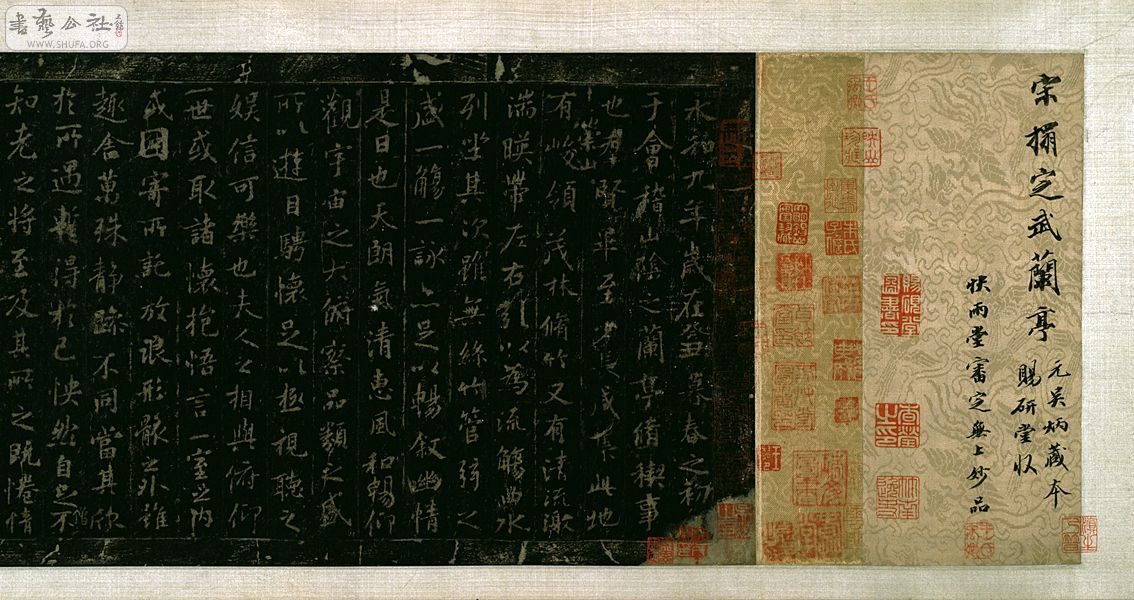 書藝公社
WWW.SHUFA.ORG
宋搨定武蘭亭
元吳炳藏本
賜研堂收
快雨堂審定無上妙品
賜硯堂圖書印
永和九年歲在癸丑暮春之初
于會稽山陰之蘭亭脩稧事
也羣賢畢至少長咸集此地
有崇山峻領茂林脩竹又有清流激
湍暎帶左右引以為流觴曲水
列坐其次雖無絲竹管弦之
盛一觴一詠亦足以暢敘幽情
是日也天朗氣清惠風和暢仰
觀宇宙之大俯察品類之盛
所以遊目騁懷足以極視聽之
娛信可樂也夫人之相與俯仰
一世或取諸懷抱悟言一室之內
或因寄所託放浪形骸之外雖
趣舍萬殊靜躁不同當其欣
於所遇蹔得於己怏然自足不
知老之將至及其所之既惓情